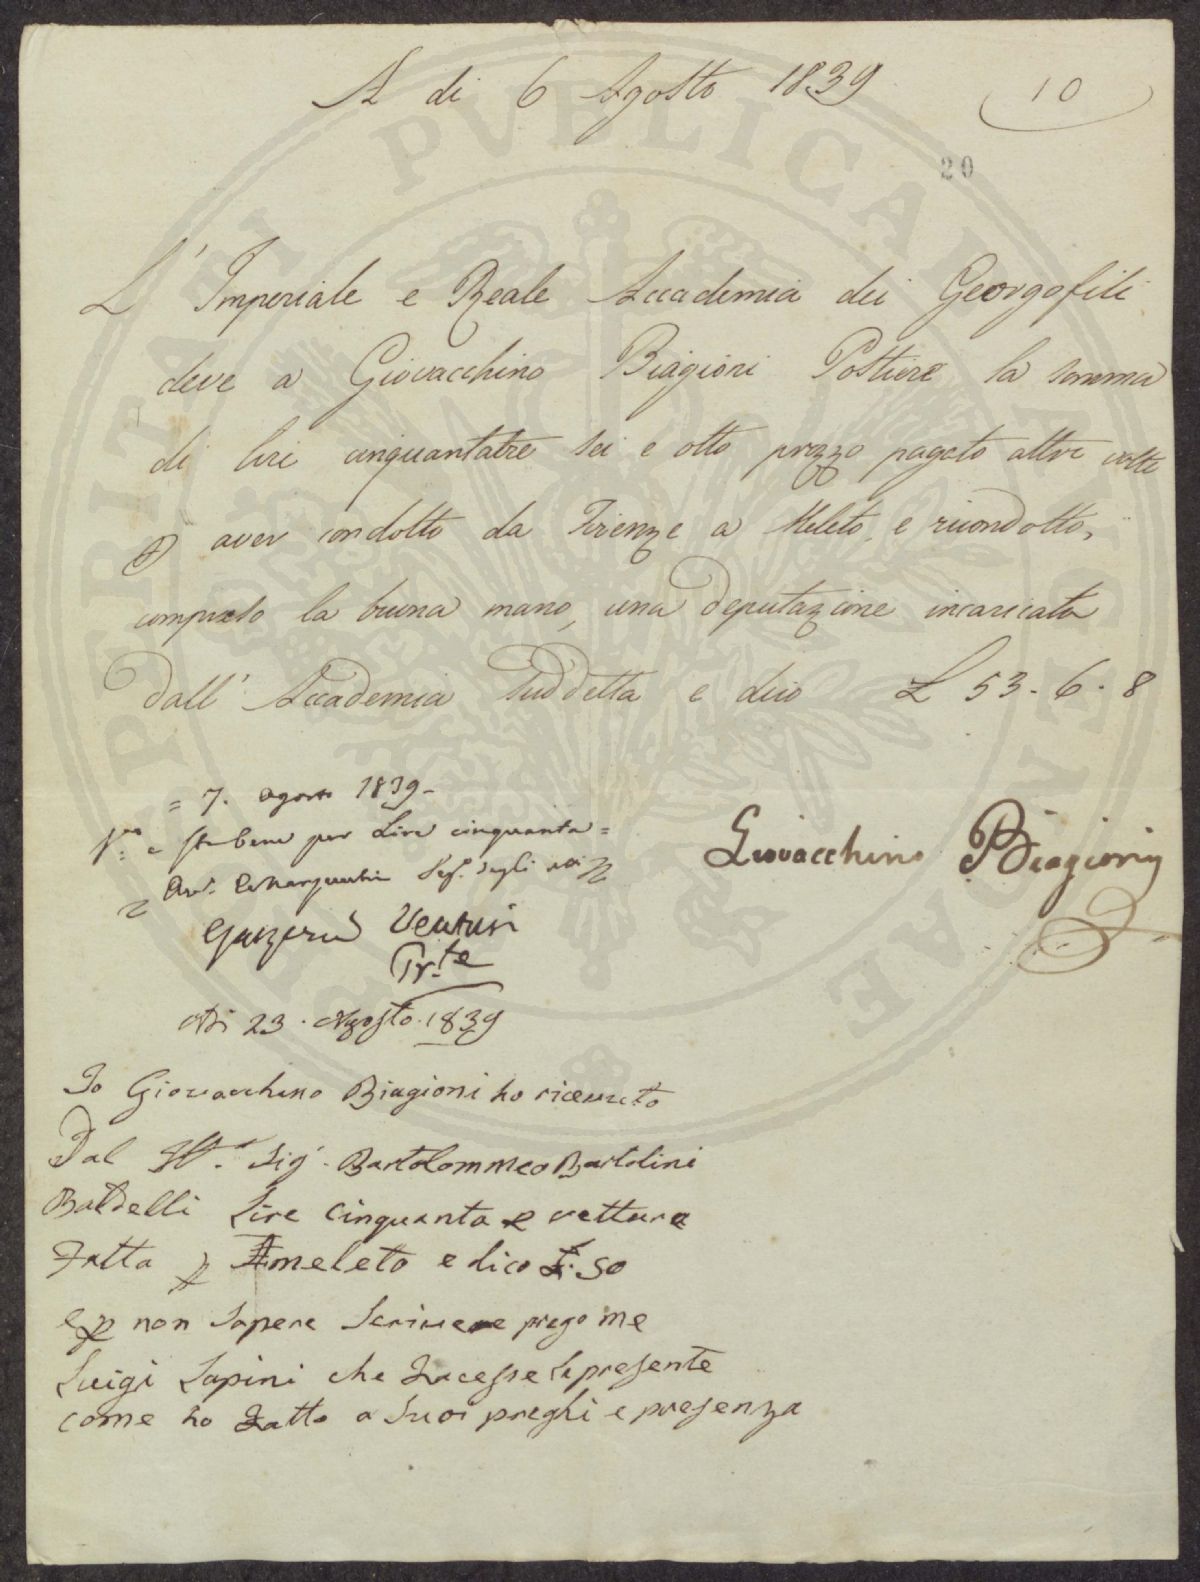 A di 6 Agosto 1839
10
20
L' Imperiale e Reale Accademia dei Georgofili
deve a Giovacchino Biagioni Postiere la somma
di lire cinquantatre sei e otto prezzo pagato altre volte
p aver condotto da Firenze a Meleto, e ricondotto,
compreso la buona mano, una Deputazione incaricata
Dall' Accademia suddetta e dico £ 53. 6. 8
= 7. agosto 1839 -
sta bene per Lire cinquanta =
Giovacchino Biagioni
Venturi
Pr.te
Adi 23. Agosto. 1839
Io Giovacchino Biagioni ho ricevuto
Dal Sig.r Bartolommeo Bartolini
Baldelli Lire Cinquanta e vettura
Fatta p Ameleto e dico £. 50
e p non Sapere Scrivere prego me
Luigi Lapini che Facesse la presente
come ho Fatto a Suoi preghi e presenza
PVBLICAE